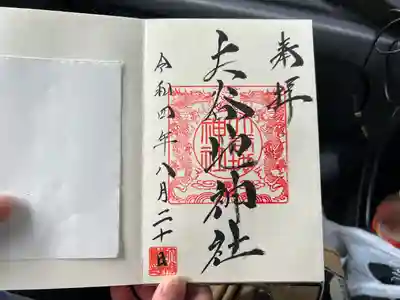 奉拝
大谷地神社
令和四年八月二十五日